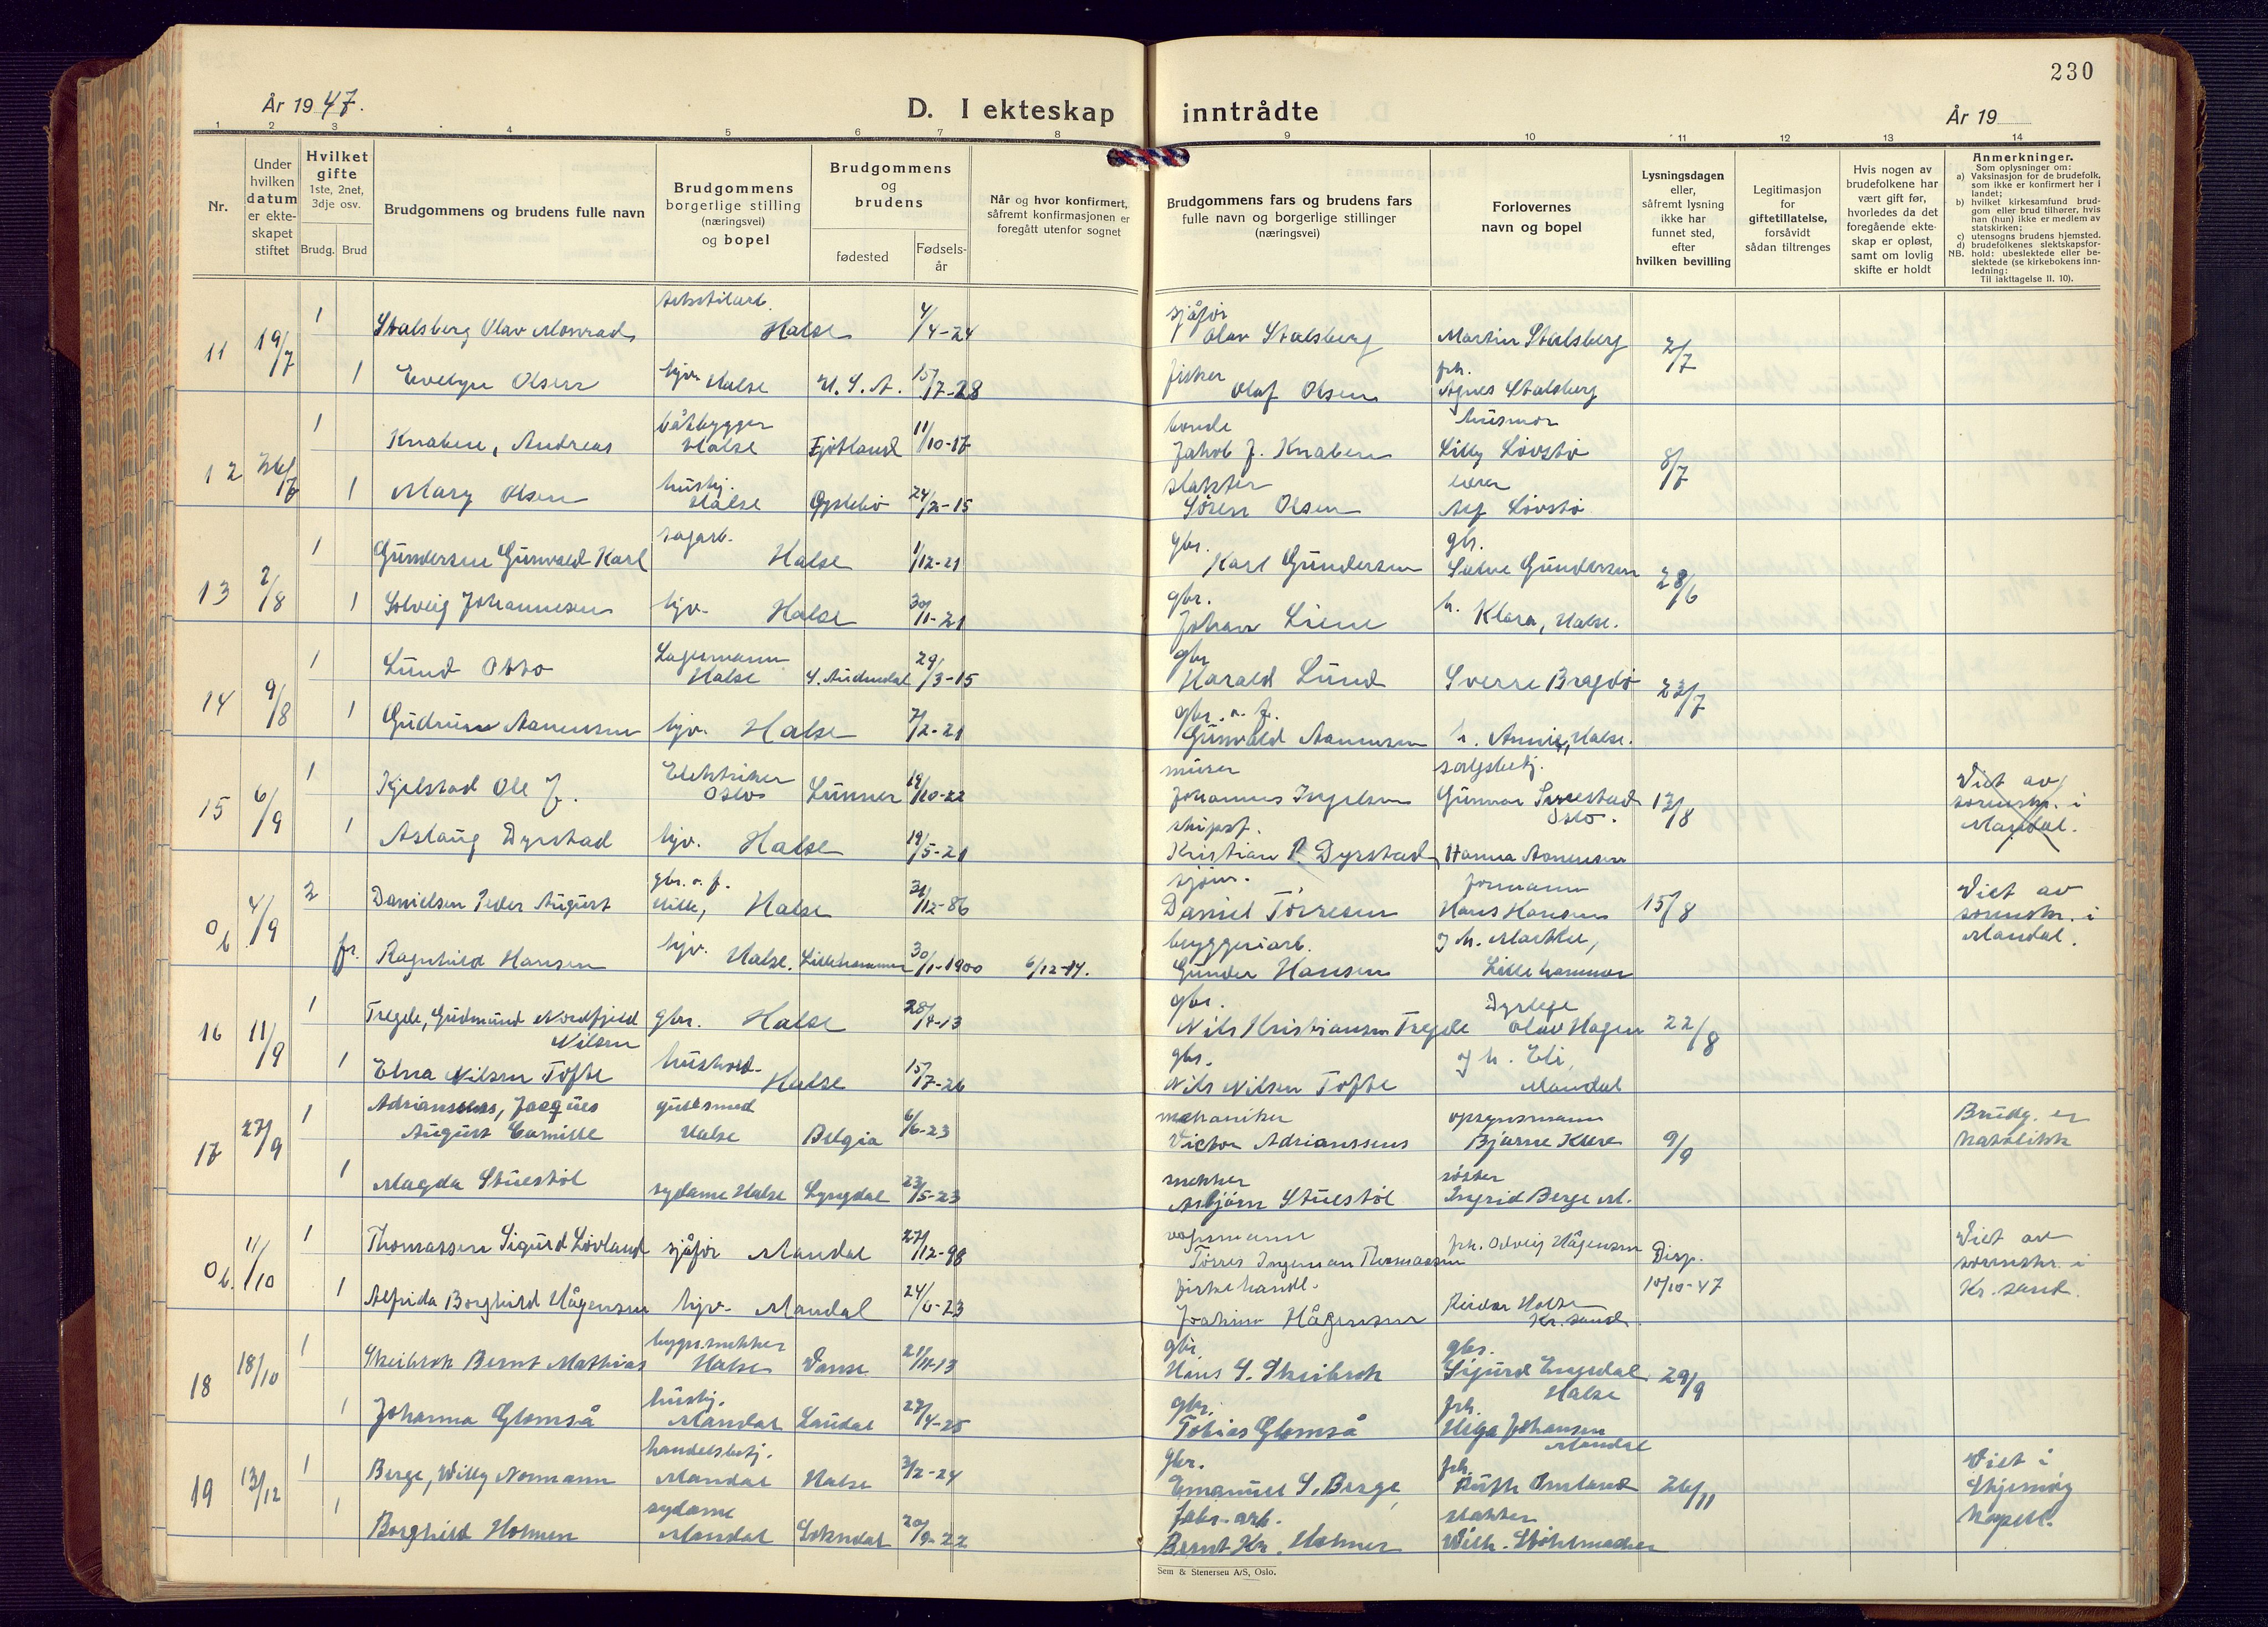 230
År 1947.
D. I ekteskap inntrådte
År 19
1 2 3 4 5 6 7 8 9 10 11 12 13 14
Nr.
Under hvilken datum er ekteskapet stiftet
Hvilket gifte 1ste, 2net, 3dje osv.
Brudg. Brud
Brudgommens og brudens fulle navn
Brudgommens borgerlige stilling (næringsvei) og bopel
Brudgommens og brudens
fødested
Fødselsår
Når og hvor konfirmert, såfremt konfirmasjonen er foregått utenfor sognet
Brudgommens fars og brudens fars fulle navn og borgerlige stillinger (næringsvei)
Forlovernes navn og bopel
Lysningsdagen eller, såfremt lysning ikke har funnet sted, efter hvilken bevilling
Legitimasjon for giftetillatelse, forsåvidt sådan tiltrenges
Hvis nogen av brudefolkene har vært gift før, hvorledes da det foregående ekteskap er opløst, samt om lovlig skifte er holdt
Anmerkninger.
Som oplysninger om:
a) Vaksinasjon for de brudefolk, som ikke er konfirmert her i landet;
b) hvilket kirkesamfund brudgom eller brud tilhører, hvis han (hun) ikke er medlem av statskirken;
c) utensogns brudens hjemsted.
d) brudefolkenes slektskapsforhold: ubeslektede eller beslektede (se kirkebokens innledning:
NB. Til iakttagelse II. 10).
11 19/7 1 Stalsberg Olav Monrad Halse 4/4-24 sjåfør Olav Stalsberg Martin Stalsberg 2/7
1 Evelyn Olsen hjv. Halse U.S.A. 15/7-28 fisker Olaf Olsen frk. Agnes Stalsberg
12 26/7 1 Knaben, Andreas båtbygger Halse Fjotland 11/10-17 bonde Jakob J. Knaben husmor Lilly Løvstø 8/7
1 Mary Olsen hushj. Halse Øyslebø 24/2-15 slakter Søren Olsen Alf Løvstø
13 2/8 1 Gundersen Gunvald Karl sagarb. Halse 1/12-21 gbr. Karl Gundersen gbr. Salve Gundersen 28/6
1 Solveig Johannesen hjv. Halse 30/1-21 gbr. Johan Liene h. Klara, Halse.
14 9/8 1 Lund Otto Lagermann Halse S. Audnedal 29/3-15 gbr Harald Lund Sverre Bragdø 23/7
1 Gudrun Aanensen hjv. Halse 7/2-21 gbr. o. f. Gunvald Aanensen h. Annie, Halse.
15 6/9 1 Kjelstad Ole J. Elektriker Oslo Lunner 19/10-22 murer Johannes Ingelsen salgsbetj. Gunnar Oslo. 13/8 Viet av sorenskr. i Mandal.
1 Aslaug Dyrstad hjv. Halse 19/5-21 skipsf. Kristian P. Dyrstad Hanna Aanensen
Ob 4/9 2 Danielsen Peder August gbr. o. f. Ville, Halse 31/12-86 sjøm. Daniel Tørresen formann Hans Hansen 15/8 Viet av sorenskr. i Mandal.
fr. Ragnhild Hansen hjv. Halse. Lillehammer 30/1-1900 6/12-14. bryggeriarb. Gunder Hansen Lillehammer
16 11/9 1 Tregde, Gudmund Nordfjeld Nilsen gbr. Halse 28/4-13 gbr. Nils Kristiansen Tregde Dyrlege Olav Hagen 22/8
1 Elna Nilsen Tofte hushold. Halse 15/7-26 gbr. Nils Nilsen Tofte og h. Eli, Mandal
17 27/9 1 Adrianssens, Jacques August Camille gullsmed Halse Belgia 6/6-23 mekaniker Victor Adrianssens opsynsmann Bjarne Kleve 9/9 Brudg. er katolikk
1 Magda Stuestøl sydame Halse Lyngdal 23/5-23 snekker Asbjørn Stuestøl søster Ingrid Berge M.
Ob. 11/10 1 Thomassen Sigurd Løvland sjåfør Mandal 27/12-98 Tørres Ingeman Thomassen frk. Solveig Hågensen Disp. 10/10-47 Viet av sorenskr. i Kr. sand.
1 Alfrida Borghild Hågensen hjv. Mandal 24/6-23 fiskehandl. Joakim Hågensen Reidar Halse Kr. sand
18 18/10 1 Skeibrok Bernt Mathias byggn.snekker Halse Vanse 21/11-13 gbr. Hans S. Skeibrok gbr. Sigurd Engedal Halse 29/9
1 Johanna Glomså hushj. Mandal Laudal 27/4-25 gbr. Tobias Glomså frk. Helga Johansen Mandal
19 13/12 1 Berge, Willy Normann handelsbetj. Mandal Halse 3/2-24 gbr. Emanuel S. Berge frk. Ruth Omland 26/11 Viet i Skjernøy kapell.
1 Borghild Holmen sydame Mandal Sokndal 20/9-22 fabr. arb. Bernt Kr. Holmen slakter
Sem & Stenersen A/S, Oslo.